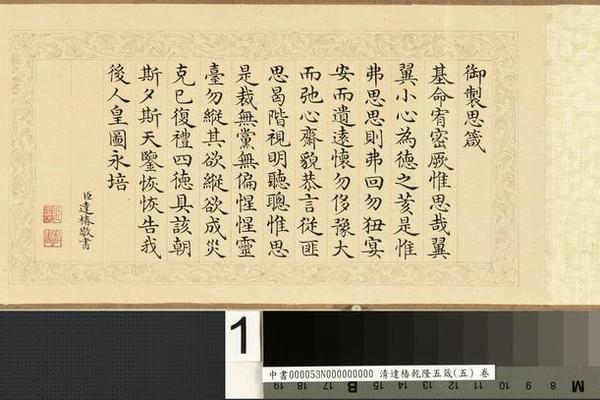 御製思箴
基命宥密厥惟思哉翼
翼小心為德之荄是惟
弗思思則弗回勿狃宴
安而遺遠懷勿侈豫大
而弛心齋貌恭言從匪
思曷階視明聽聰惟思
是裁無黨無偏惺惺靈
臺勿縱其欲縱欲成災
克已復禮四德具該朝
斯夕斯天鑒恢恢告我
後人皇圖永培
臣達椿敬書
1
中書000053N000000000 清達椿乾隆五箴(五) 卷
M 8 9 10 11 12 13 14 15 B 17 18 19